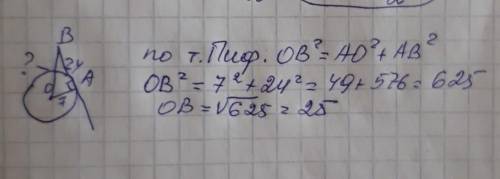 B
? 24
O A
7
по т. Пиф. OB² = AO² + AB²
OB² = 7² + 24² = 49 + 576 = 625
OB = √625 = 25